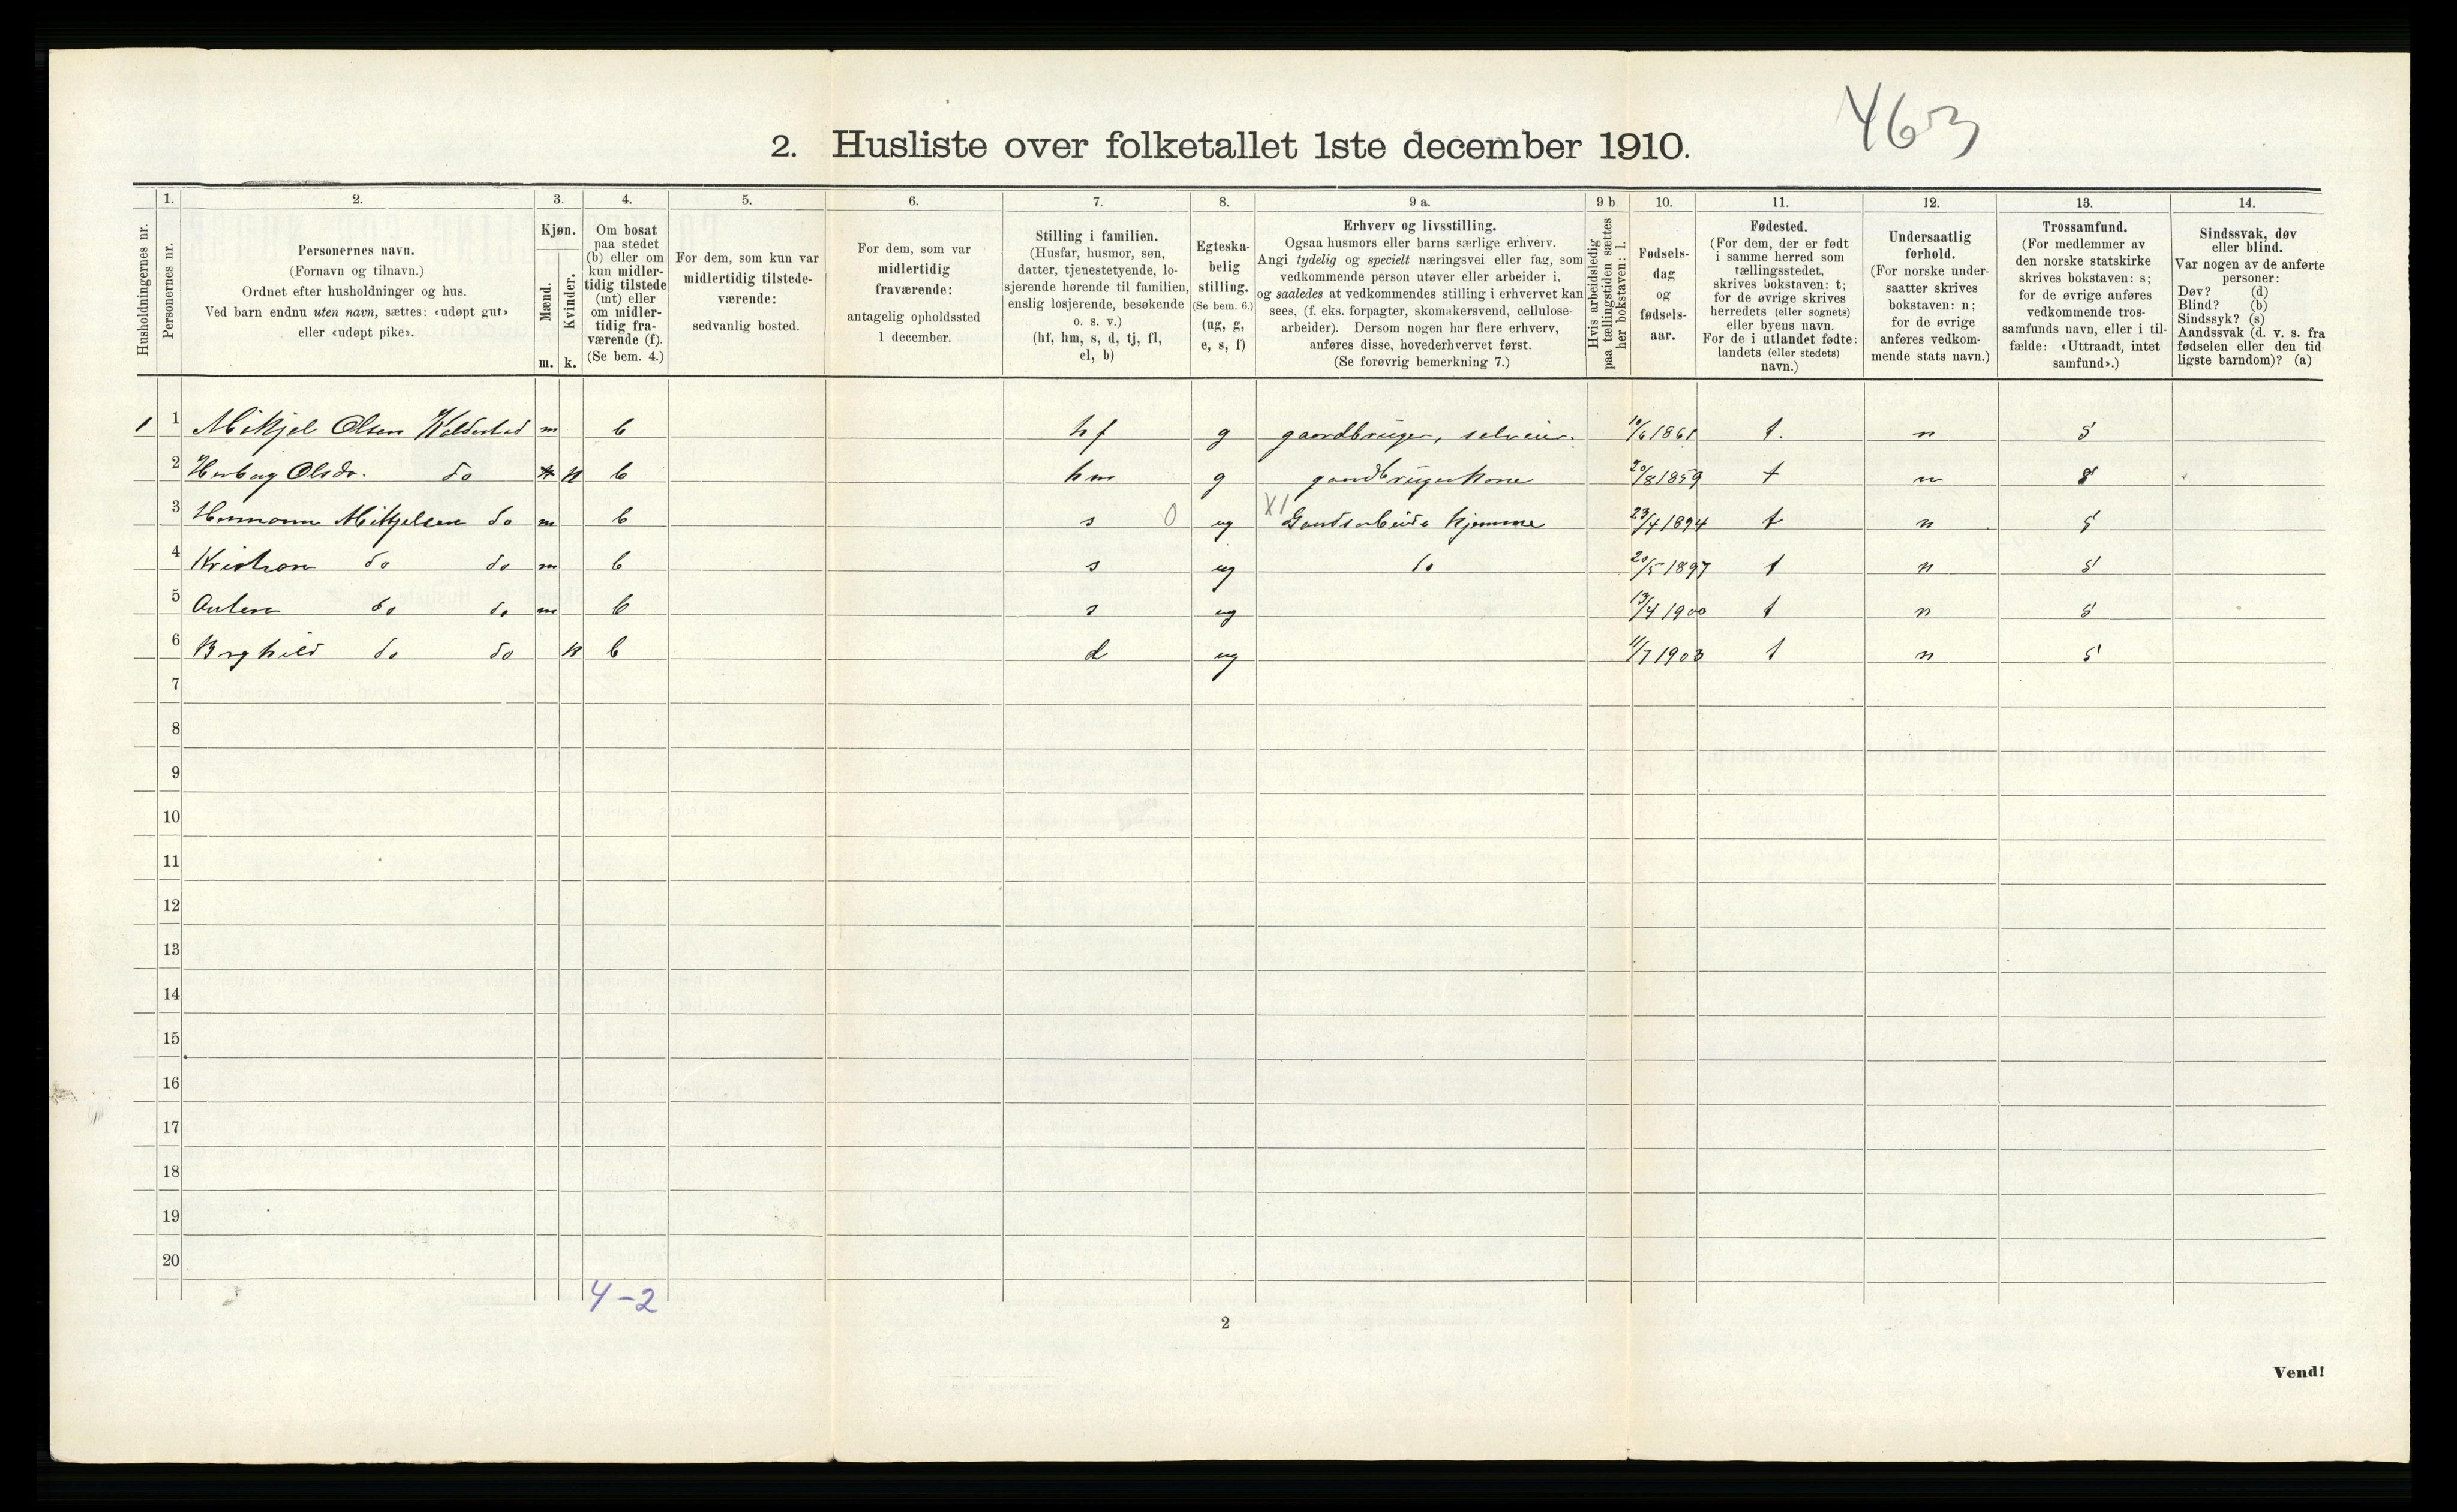 463
2. Husliste over folketallet 1ste december 1910.
Husholdningernes nr.
1.
Personernes nr.
2.
Personernes navn.
(Fornavn og tilnavn.)
Ordnet efter husholdninger og hus.
Ved barn endnu uten navn, sættes: «udøpt gut»
eller «udøpt pike».
3.
Kjøn.
Mænd.
Kvinder.
m. k.
4.
Om bosat
paa stedet
(b) eller om
kun midler-
tidig tilstede
(mt) eller
om midler-
tidig fra-
værende (f).
(Se bem. 4.)
5.
For dem, som kun var
midlertidig tilstede-
værende:
sedvanlig bosted.
6.
For dem, som var
midlertidig
fraværende:
antagelig opholdssted
1 december.
7.
Stilling i familien.
(Husfar, husmor, søn,
datter, tjenestetyende, lo-
sjerende hørende til familien,
enslig losjerende, besøkende
o. s. v.)
(hf, hm, s, d, tj, fl,
el, b)
8.
Egteska-
belig
stilling.
(Se bem. 6.)
(ug, g,
e, s, f)
9 a.
Erhverv og livsstilling.
Ogsaa husmors eller barns særlige erhverv.
Angi tydelig og specielt næringsvei eller fag, som
vedkommende person utøver eller arbeider i,
og saaledes at vedkommendes stilling i erhvervet kan
sees, (f. eks. forpagter, skomakersvend, cellulose-
arbeider). Dersom nogen har flere erhverv,
anføres disse, hovederhvervet først.
(Se forøvrig bemerkning 7.)
9 b
Hvis arbeidsledig
paa tællingstiden sættes
her bokstaven: l.
10.
Fødsels-
dag
og
fødsels-
aar.
11.
Fødested.
(For dem, der er født
i samme herred som
tællingsstedet,
skrives bokstaven: t;
for de øvrige skrives
herredets (eller sognets)
eller byens navn.
For de i utlandet fødte:
landets (eller stedets)
navn.)
12.
Undersaatlig
forhold.
(For norske under-
saatter skrives
bokstaven: n;
for de øvrige
anføres vedkom-
mende stats navn.)
13.
Trossamfund.
(For medlemmer av
den norske statskirke
skrives bokstaven: s;
for de øvrige anføres
vedkommende tros-
samfunds navn, eller i til-
fælde: «Uttraadt, intet
samfund».)
14.
Sindssvak, døv
eller blind.
Var nogen av de anførte
personer:
Døv? (d)
Blind? (b)
Sindssyk? (s)
Aandssvak (d. v. s. fra
fødselen eller den tid-
ligste barndom)? (a)
1 1 Mikjel Olsen m b hf g gaardbruger, selveier. 10/6 1861 t. n s
2 Herborg Olsdr. do k b hm g gaardbrugerkone 20/8 1859 t n s
3 Hermann Mikjelsen do m b s 0 ug XI Gaardsarbeide hjemme 23/4 1894 t n s
4 Kristian do do m b s ug do 20/5 1897 t n s
5 do do m b s ug 13/4 1900 t n s
6 Borghild do do k b d ug 11/7 1903 t n s
7
8
9
10
11
12
13
14
15
16
17
18
19
20
4-2
2
Vend!